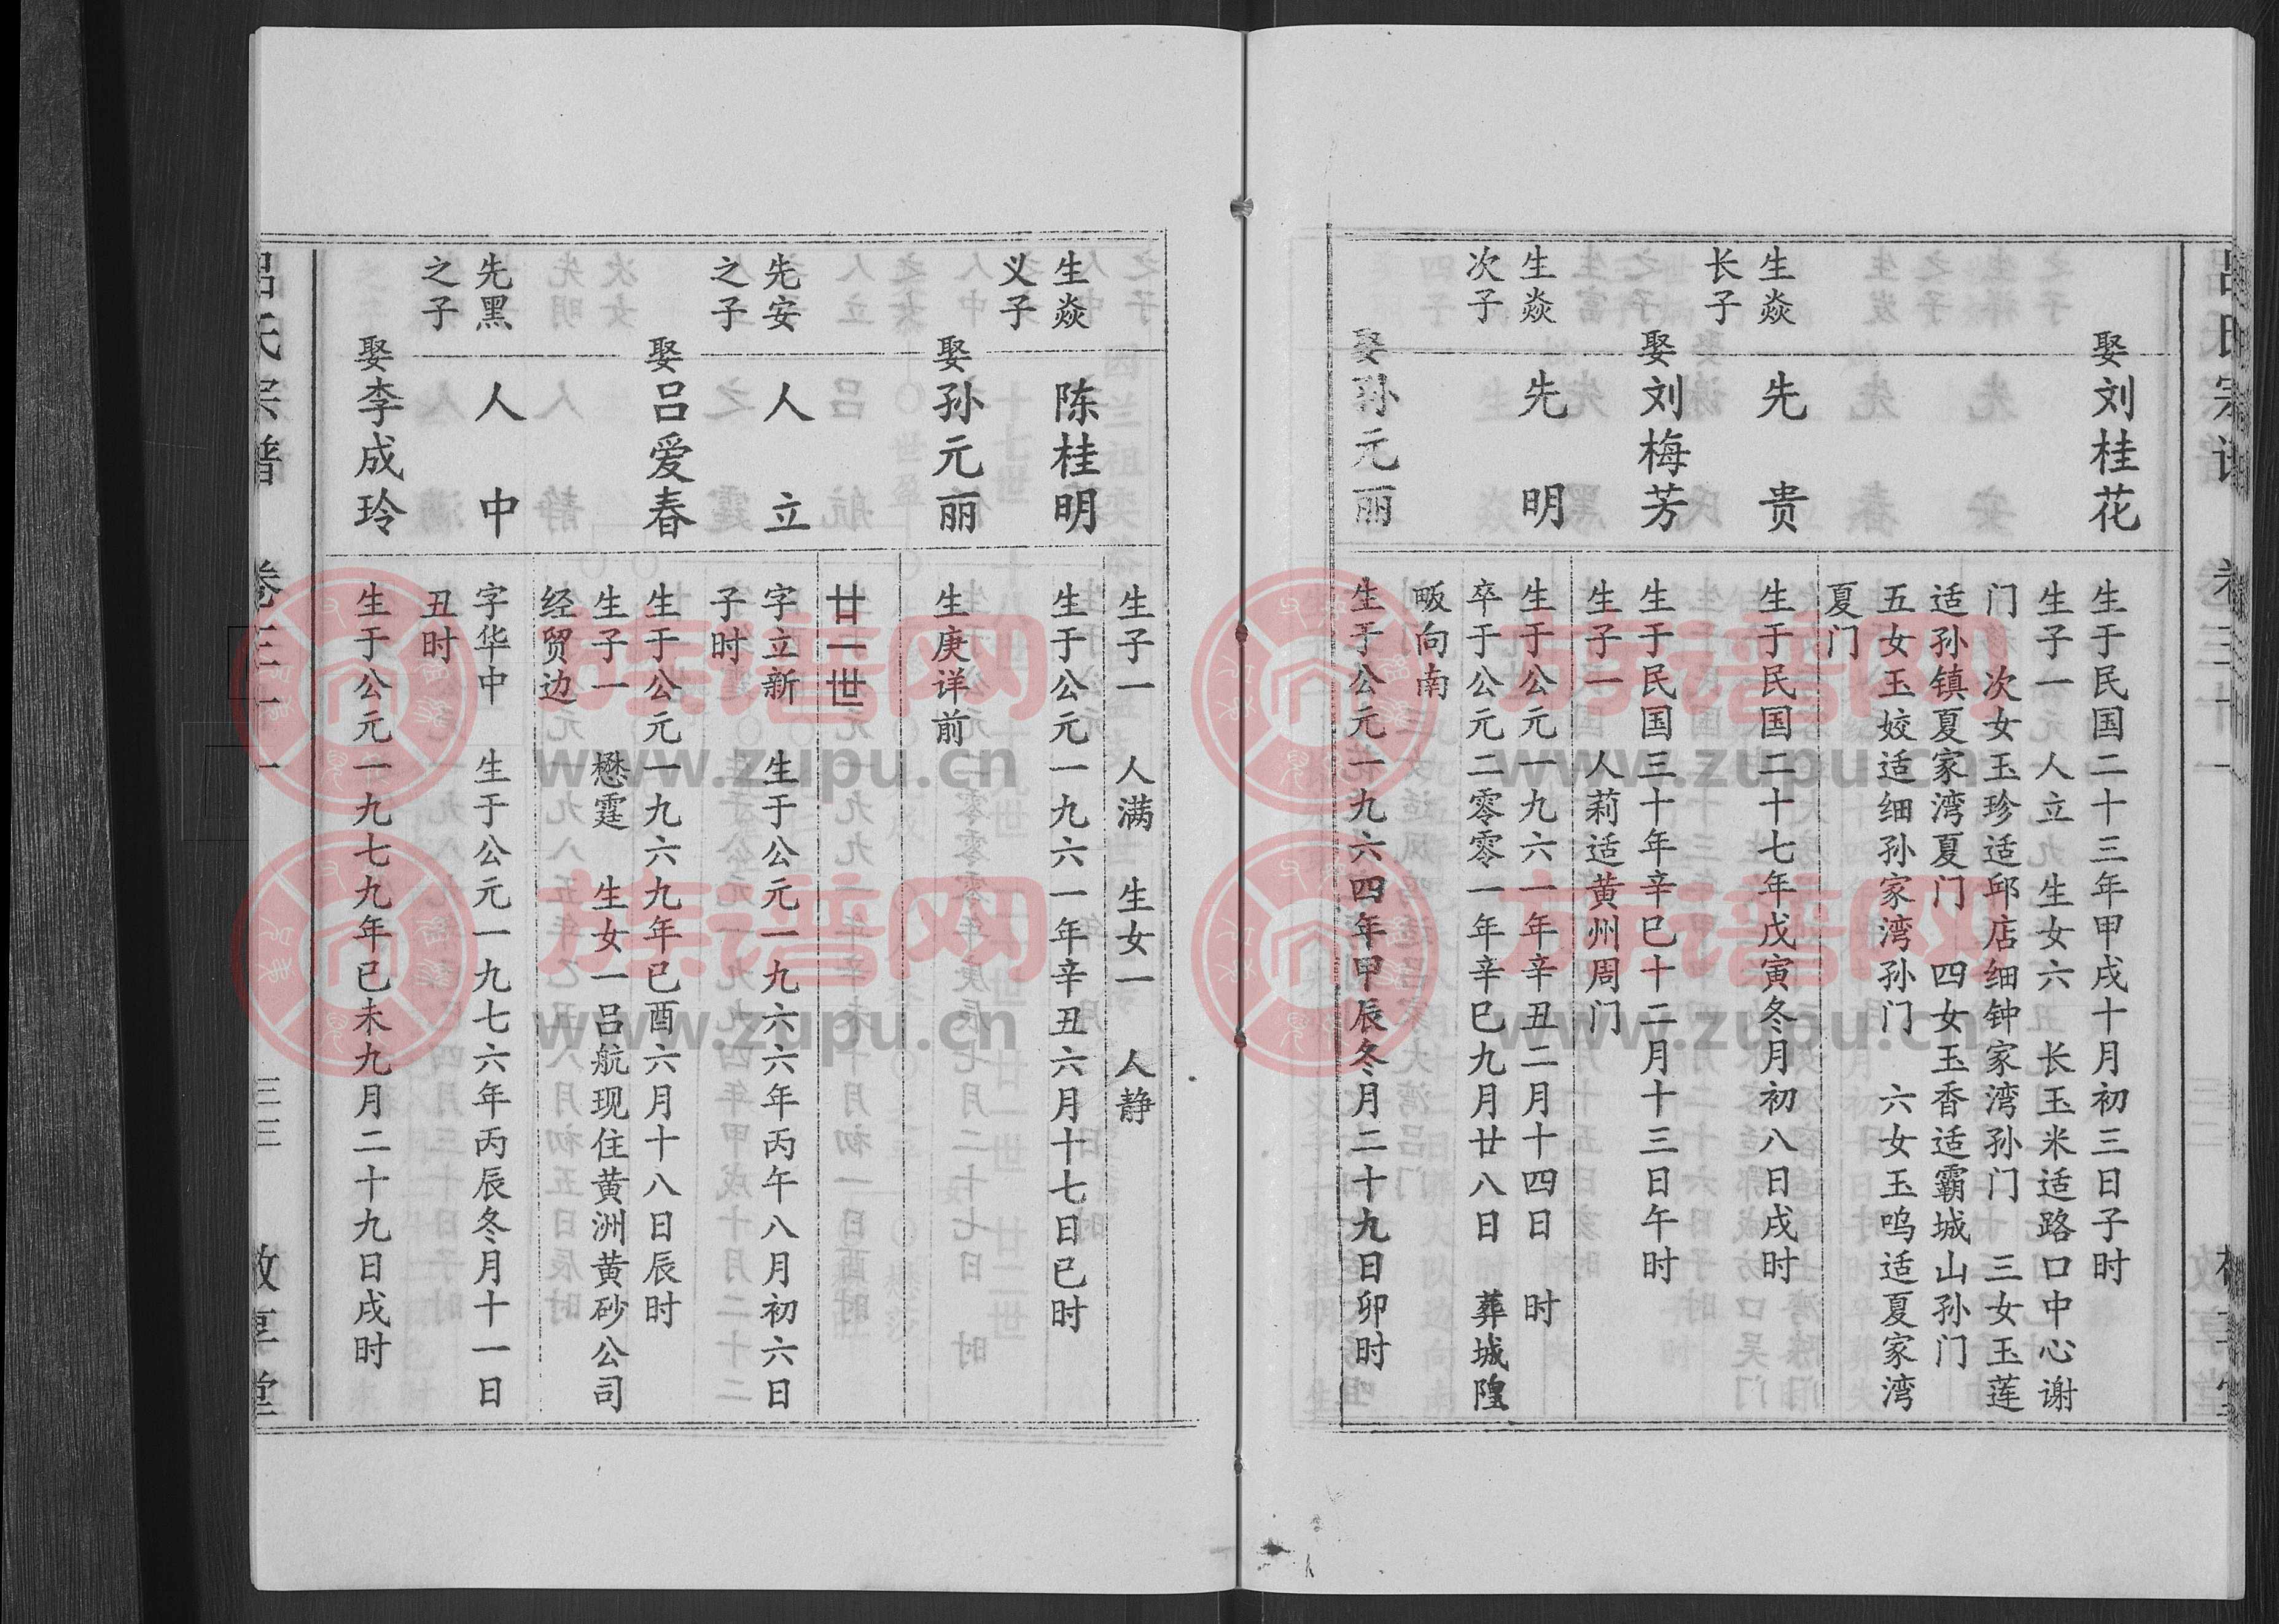 娶刘桂花
生于民国二十三年甲戌十月初三日子时
生子一 人立 生女六 长玉米适路口中心谢
门 次女玉珍适邱店细钟家湾孙门 三女玉莲
适孙镇夏家湾夏门 四女玉香适霸城山孙门
五女玉姣适细孙家湾孙门 六女玉鸣适夏家湾
夏门
生焱
长子
先贵
生于民国二十七年戊寅冬月初八日戌时
娶刘梅芳
生于民国三十年辛巳十二月十三日午时
生子一 人莉适黄州周门
生焱
次子
先明
生于公元一九六一年辛丑二月十四日 时
卒于公元二零零一年辛巳九月廿八日 葬城隍
畈向南
娶孙元丽
生于公元一九六四年甲辰冬月二十九日卯时
生子一 人满 生女一 人静
生焱
义子
陈桂明
生于公元一九六一年辛丑六月十七日巳时
娶孙元丽
生庚详前
廿一世
先安
之子
人立
字立新 生于公元一九六六年丙午八月初六日
子时
娶吕爱春
生于公元一九六九年已酉六月十八日辰时
生子一 懋霆 生女一吕航现住黄洲黄砂公司
经贸边
先黑
之子
人中
字华中 生于公元一九七六年丙辰冬月十一日
丑时
娶李成玲
生于公元一九七九年已未九月二十九日戌时
吕氏宗谱 卷三十一 三三 敦享堂
族谱网
www.zupu.cn
族谱网
www.zupu.cn
族谱网
www.zupu.cn
族谱网
www.zupu.cn